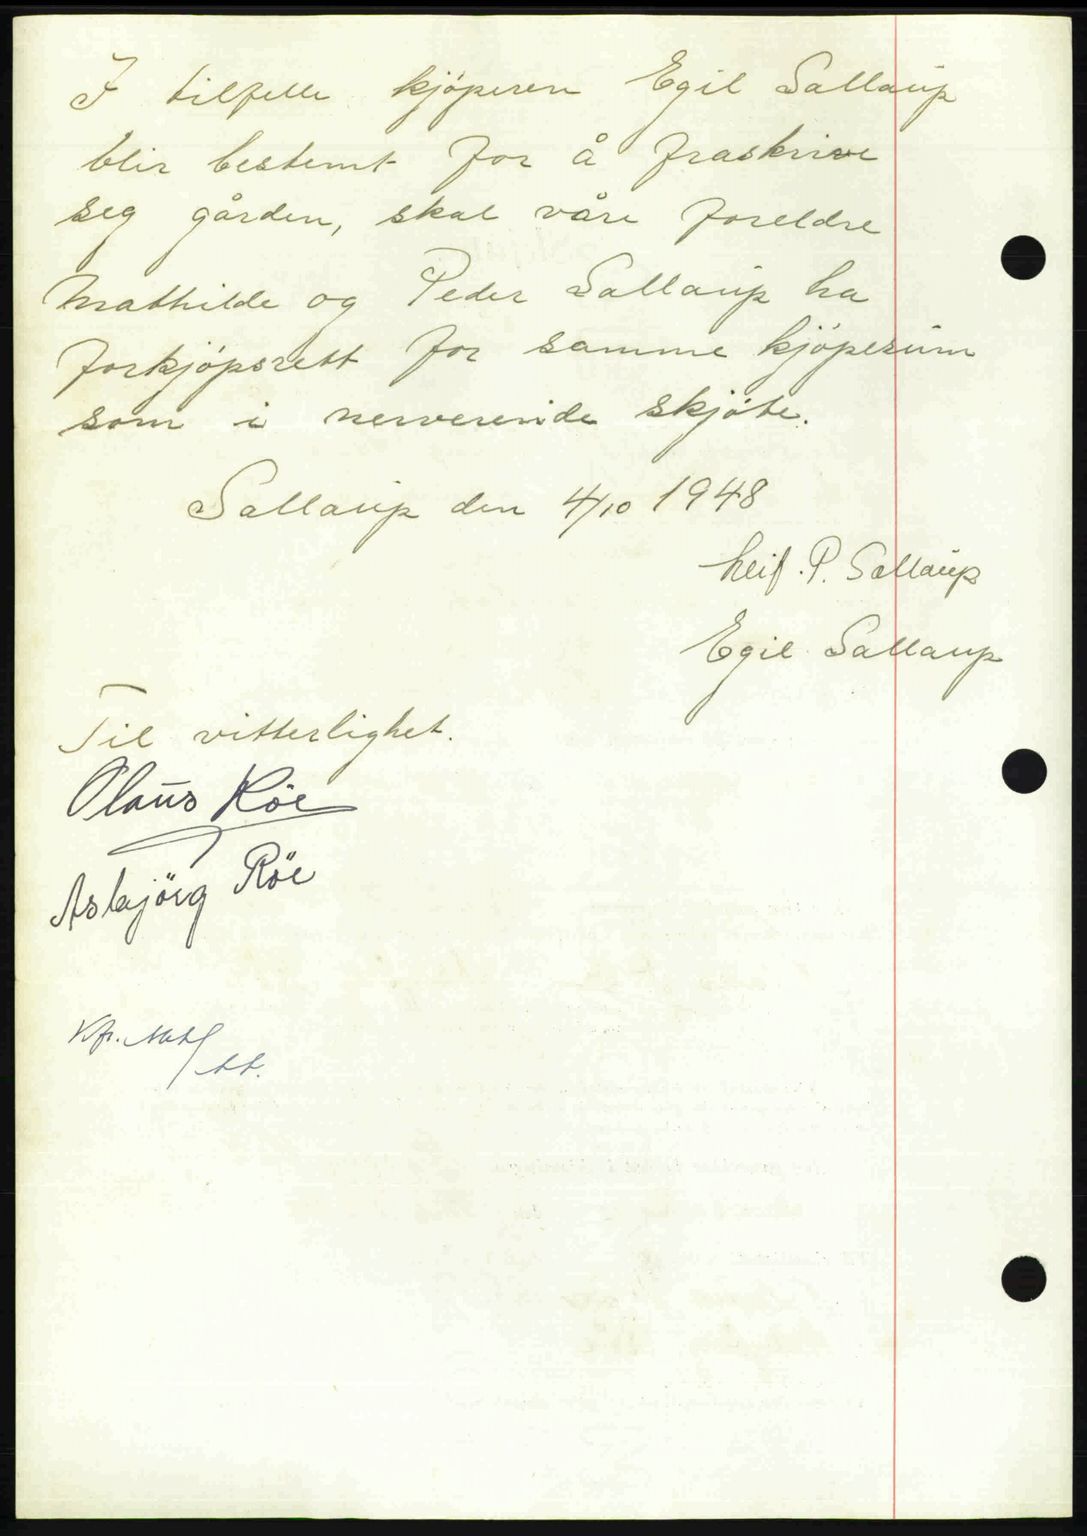 I tilfelle kjöperen Egil Sallaup
blir bestemt for å fraskrive
seg gården, skal våre foreldre
Mathilde og Peder Sallaup ha
forkjöpsrett for samme kjöpesum
som i nerverende skjöte.
Sallaup den 4/10 1948
Leif. P. Sallaup
Egil Sallaup
Til vitterlighet.
Olaus Röe
Asbjörg Röe
Kfr.